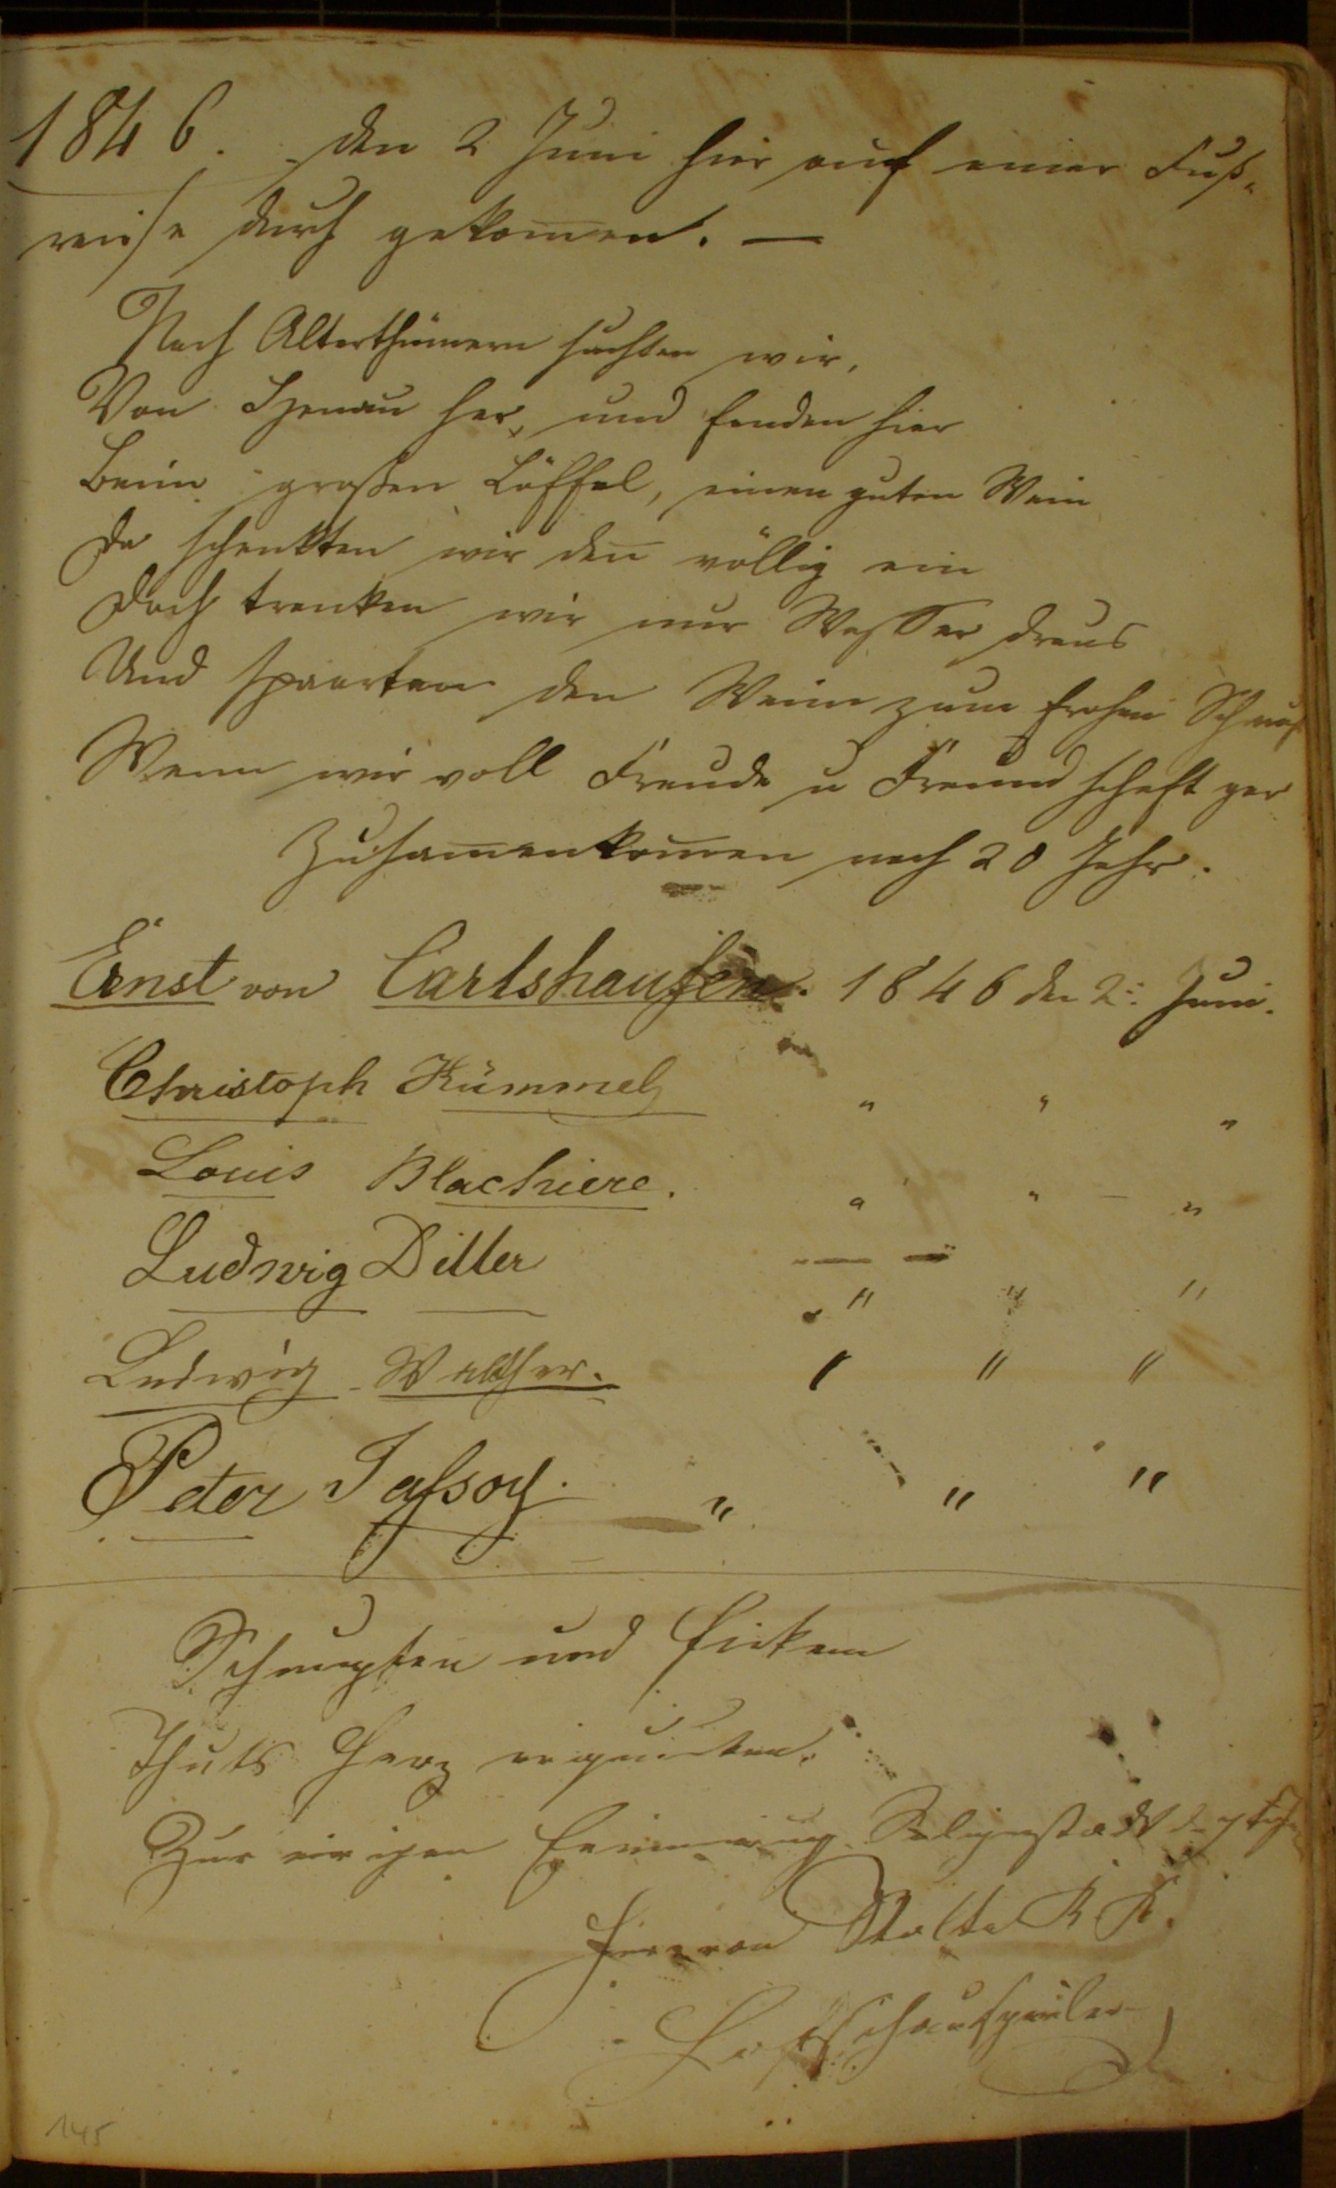 1846. den 2 Juni hier auf einer Fuß-
reise durch gekom̅en. —
Nach Alterthümern suchten wir,
Von Hanau her, und fanden hier
Beim großen Löffel, einen guten Wein
Da schenkten wir den̅ völlig ein
Doch tranken wir nur Wasser draus
Und sparten den Wein zum frohen Schmaus
Wenn wir voll Freude u Freundschaft gar
Zusam̅enkom̅en nach 20 Jahr.
Ernst von Carlshausen. 1846 den 2. Juni.
Christoph Kümmel " " "
Louis Blachiere. " " "
Ludwig Diller " " "
Ludwig Walther. " " "
Peter Jassoy. " " "
Schnupfen und
Thuts Herz erquicken.
Zur Erinnerung Seligenstadt
von Stolte K. K.
Hofschauspieler
145